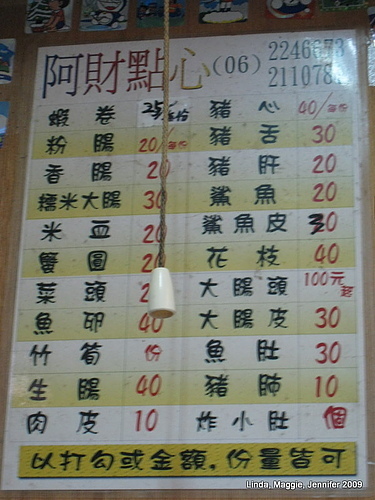 阿財點心 (06)
蝦卷 豬心 40/每份
粉腸 20/每份 豬舌 30
香腸 20 豬肝 20
糯米大腸 30 鯊魚 20
米血 20 鯊魚皮 30
蟹圓 20 花枝 40
菜頭 大腸頭 100元起
魚卵 40 大腸皮 30
竹筍 份 魚肚 30
生腸 40 豬肺 10
肉皮 10 炸小肚 個
以打勾或金額,份量皆可
Linda, Maggie, Jennifer 2009